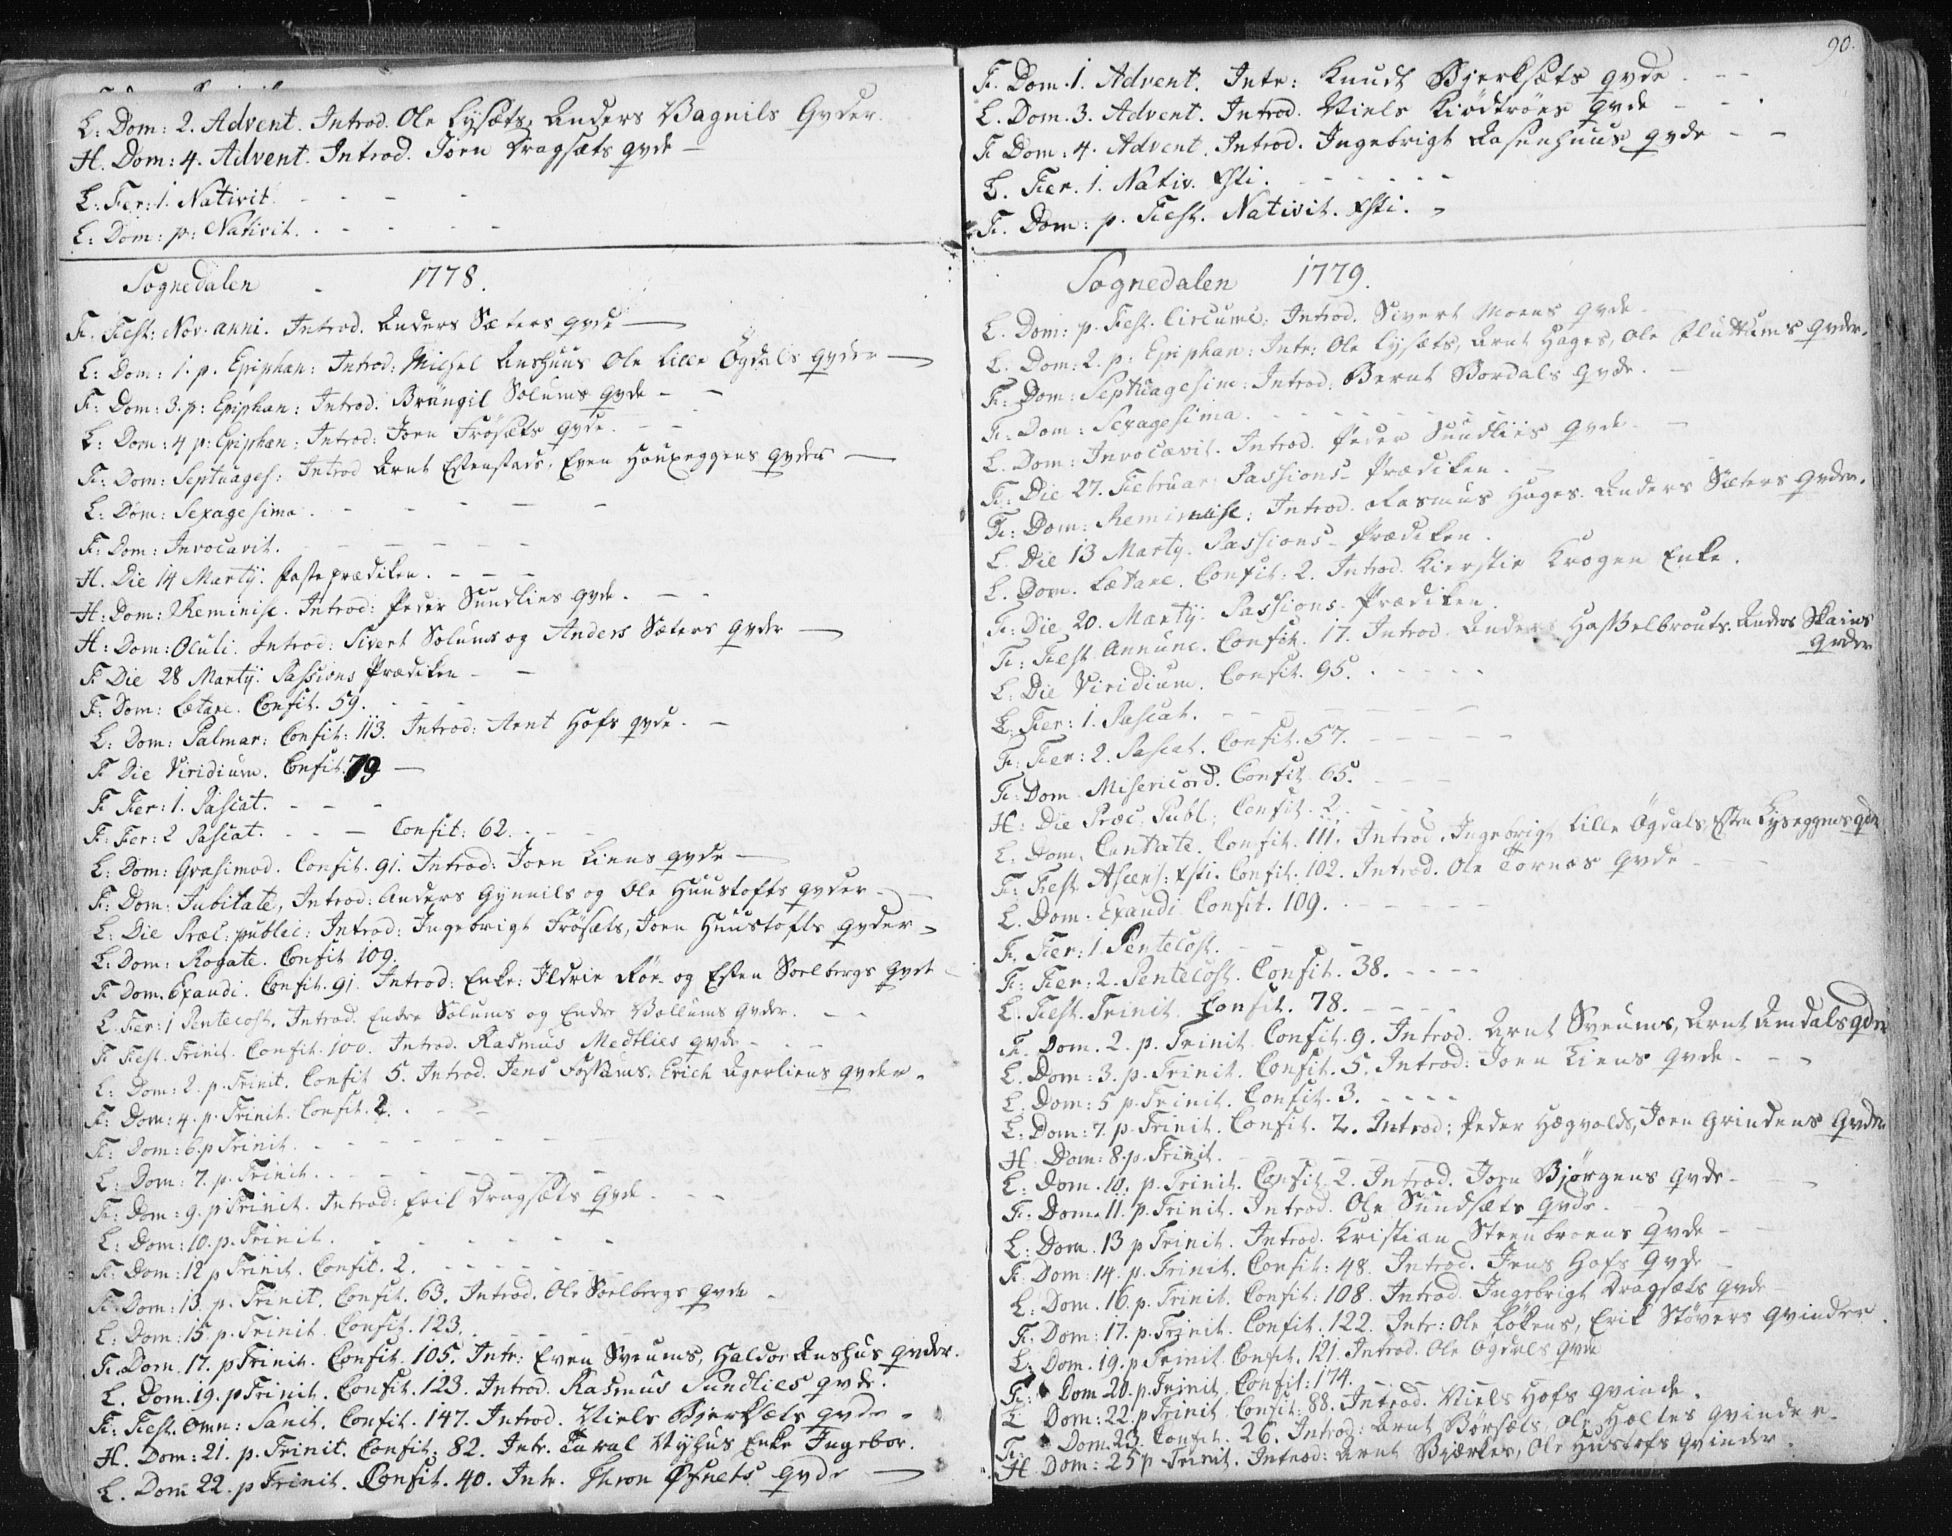 L: Dom: 2. Advent. Introd. Ole Lysæts, Anders Vagnils Qvder.
H. Dom: 4. Advent. Introd. Joen Dragsæts qvde
L: Fer: 1. Nativit.
L: Dom: p: Nativit.
Sognedalen 1778.
F. Fest: Nov. anni. Introd. Anders Sæters qvde
L: Dom: 1. p. Epiphan: Introd: Michel Aushuus Ole Lille Ögdals Qvder
F: Dom: 3. p: Epiphan: Introd. Brüngil Solums Qvde
L: Dom: 4 p: Epiphan: Introd: Joen Frösæts Qvde.
F: Dom: Septuages: Introd Arnt Estenstads, Even Houxeggens Qvder
L: Dom: Sexagesima.
F: Dom: Invocavit.
H. Die 14 Martÿ. Fasteprædiken.
H: Dom: Reminisc. Introd: Peder Sundlies Qvde.
H: Dom: Oculi. Introd: Sivert Solums og Anders Sæters Qvdr
F. Die 28 Martÿ: Passions Prædiken
F: Dom: Lætare. Confit. 59.
L: Dom: Palmar: Confit: 113. Introd: Arnt Hofs qvde.
F Die Viridium. Confit 79
F Fer: 1. Pascat.
F: Fer: 2 Pascat. Confit: 62.
L: Dom: Qvasimod. Confit. 91. Introd: Joen Liens qvde
F: Dom: Jubilate, Introd: Anders Gynnils og Ole Huustofts qvder
L: Die Præc: public: Introd: Ingebrigt Frösæts, Joen Huustofts Qvder
L: Dom: Rogate. Confit 109.
F Dom. Exaudi. Confit. 91. Introd: Enke: Ildrie Röe og Esten Soelbergs Qvde
L. Fer: 1 Pentecost. Introd. Endre Solums og Endre Vollums Qvder.
F Fest. Trinit. Confit. 100. Introd. Rasmus Medtlies qvde
L: Dom: 2. p. Trinit. Confit 5. Introd. Jens Foskums. Erich Agerliens qvder.
F: Dom: 4. p. Trinit. Confit. 2.
F: Dom: 6. p Trinit.
L: Dom: 7. p. Trinit.
F: Dom: 9. p Trinit. Introd: Eril Dragsæts Qvde.
L: Dom: 10. p. Trinit.
F: Dom: 12 p Trinit. Confit. 2.
F: Dom: 13. p. Trinit. Confit. 63. Introd. Ole Soelbergs Qvde
L: Dom: 15 p. Trinit. Confit. 123.
F. Dom. 17. p Trinit. Confit. 105. Intr: Even Sveums, Haldor Aushus qvder.
L. Dom. 19. p Trinit. Confit. 123. Introd. Rasmus Sundlies qvde.
F: Fest. Omn: Sanct. Confit. 147. Introd. Niels Bjerksæts qvde
H. Dom: 21. p. Trinit. Confit: 82. Intr. Taral Nyhus Enke Ingebor.
L. Dom 22. p Trinit. Confit. 40. Intr. Thron Ofnets qvde
90.
F. Dom. 1. Advent. Intr: Knudt Bjerksæts qvde
L. Dom. 3. Advent. Introd. Niels Kiödtröes qvde
F Dom: 4. Advent. Introd. Ingebrigt Aasenhuus qvde
L. Fer. 1. Nativ. Xsti.
F. Dom: p. Fest. Nativit. Xsti.
Sognedalen 1779.
L. Dom: p. Fest. Circumc: Introd. Sivert Moens qvde
L. Dom: 2. p: Epiphan: Intr: Ole Lysæts, Arnt Hages, Ole Fluttums Qvder.
F: Dom: Septuagesim: Introd: Bernt Bordals qvde.
F. Dom: Sexagesima.
L. Dom: Invocavit. Introd. Peder Sundlies Qvde
F. Die 27. Februar: Passions-Prædiken.
F: Dom: Reminisc: Introd. Rasmus Hages. Anders Sæters Qvder.
L. Die 13 Martÿ. Passions-Prædiken.
L. Dom. Lætare. Confit: 2. Introd. Kierstie Krogen Enke.
F: Die 20. Martÿ: Passions-Prædiken.
F: Fest Annunc. Confit. 17. Introd. Anders Hasselbrouts. Anders Skaius
Qvder
L: Die Viridium. Confit. 95.
L: Fer: 1. Pascat.
F: Fer: 2. Pascat. Confit. 57.
F: Dom Misericord. Confit. 65.
H: Die Præc. Publ; Confit. 2
L. Dom. Cantate. Confit. 111. Introd. Ingebrigt Lille Ögdals, Esten Lyseggens qvder
F: Fest Ascens: Xsti. Confit. 102. Introd. Ole Tornæs Qvde
L. Dom. Exaudi Confit. 109.
F. Fer: 1. Pentecost.
F: Fer: 2. Pentecost. Confit. 38.
L. Fest. Trinit. Confit. 78.
F. Dom. 2. p. Trinit Confit. 9. Introd. Arnt Sveums, Arnt Amdals qvdr
L. Dom: 3. p. Trinit. Confit. 5. Introd: Joen Liens qvde
L: Dom: 5 p. Trinit. Confit. 3.
L: Dom: 7. p. Trinit. Confit. 2. Introd: Peder Hægvolds, Joen Grindens Qvder
H. Dom: 8. p. Trinit.
L: Dom. 10. p. Trinit. Confit 2. Introd. Joen Bjørgens qvde
F: Dom. 11. p. Trinit. Introd. Ole Sundsæts qvde.
L: Dom. 13 p Trinit. Introd. Kristian Steenbroens Qvde
F: Dom: 14. p. Trinit. Confit: 48. Introd. Jens Hofs Qvde
L: Dom. 16. p. Trinit. Confit: 108. Introd. Ingebrigt Dragsæts qvde
F. Dom: 17. p. Trinit. Confit. 122. Intr: Ole Lökens, Erik Stövers qvinder.
L: Dom. 19. p Trinit Confit. 121. Introd. Ole Ögdals qvde
F: Dom 20. p. Trinit. Confit: 174.
L Dom: 22. p Trinit. Confit: 88. Introd. Niels Hofs Qvinde.
F: Dom. 23. Confit. 26. Introd: Arnt Börsæts, Ole Holtes qvinder.
H Dom: 25 p Trinit. Introd: Arnt Bjærkes, Ole Hustofs qvinder.